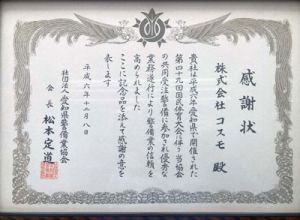 感謝状
株式会社 コスモ 殿
貴社は平成六年愛知県で開催された
第四十九回国民体育大会に伴う当協会
の共同受注警備に参加され優秀な
業務遂行により警備業の信頼を
高められました
ここに記念品を添えて感謝の意を
表します
平成六年十二月八日
社団法人 愛知県警備業協会
会長 松本定道